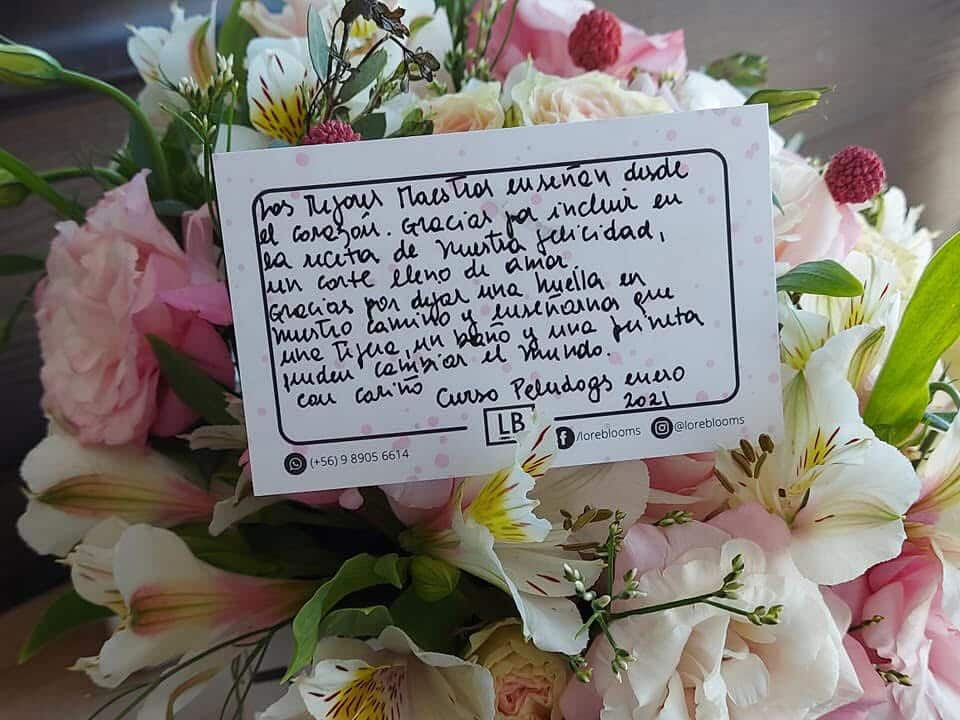 Los Mejores Maestros enseñan desde
el corazón. Gracias por incluir en
la receta de nuestra felicidad,
un corte lleno de amor.
Gracias por dejar una huella en
nuestro camino y enseñarnos que
una Tijera, un baño y una peineta
pueden cambiar el mundo.
con cariño Curso Peludogs enero
2021
LB
/loreblooms @loreblooms
(+56) 9 8905 6614